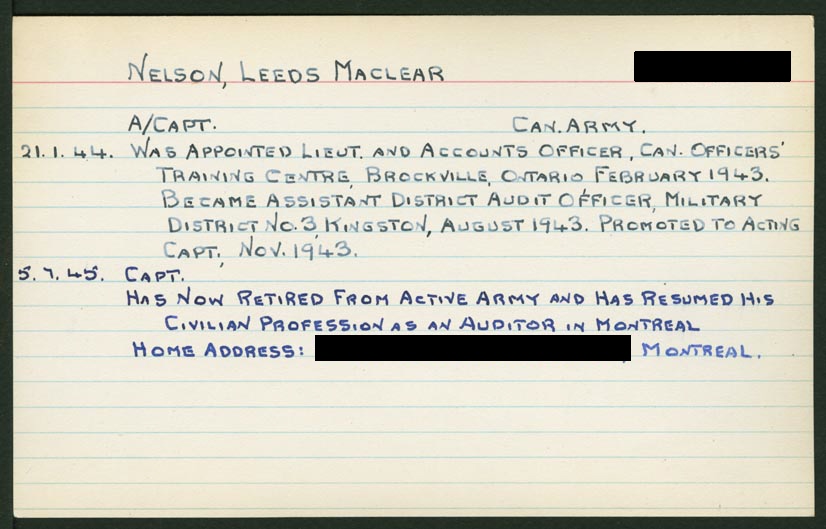 NELSON, LEEDS MACLEAR
A/CAPT. CAN. ARMY.
21.1.44. WAS APPOINTED LIEUT. AND ACCOUNTS OFFICER, CAN. OFFICERS'
TRAINING CENTRE, BROCKVILLE, ONTARIO FEBRUARY 1943.
BECAME ASSISTANT DISTRICT AUDIT OFFICER, MILITARY
DISTRICT NO. 3, KINGSTON, AUGUST 1943. PROMOTED TO ACTING
CAPT., NOV. 1943.
5.7.45. CAPT.
HAS NOW RETIRED FROM ACTIVE ARMY AND HAS RESUMED HIS
CIVILIAN PROFESSION AS AN AUDITOR IN MONTREAL
HOME ADDRESS: MONTREAL.